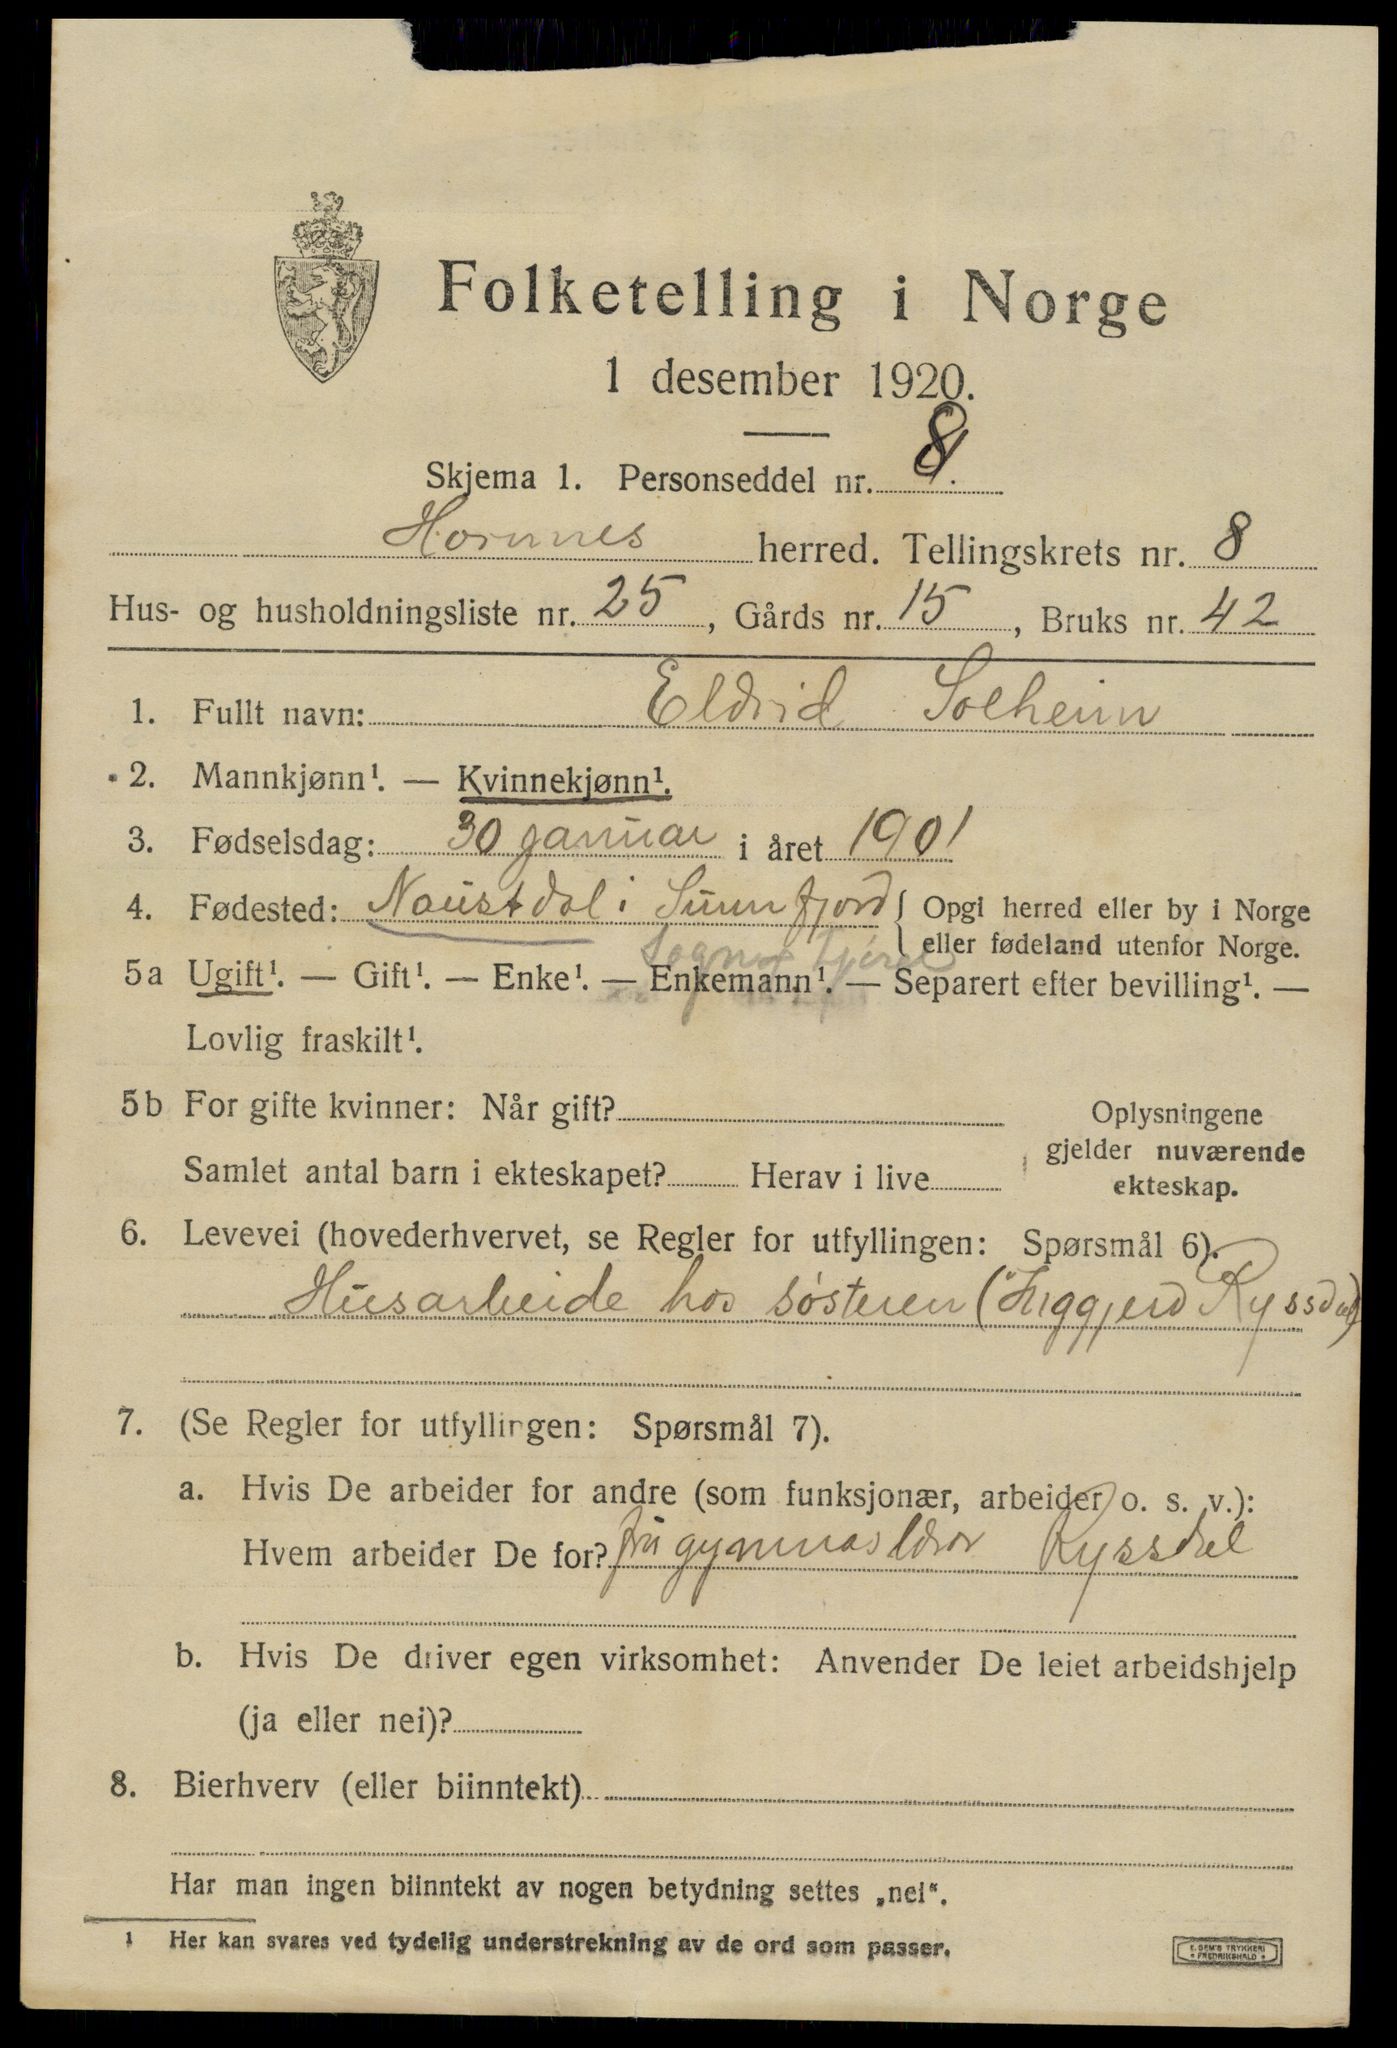 Folketelling i Norge
1 desember 1920.
Skjema 1. Personseddel nr. 8.
Hornnes herred. Tellingskrets nr. 8
Hus- og husholdningsliste nr. 25, Gårds nr. 15, Bruks nr. 42
1. Fullt navn: Eldrid Solheim
2. Mannkjønn¹. — Kvinnekjønn¹.
3. Fødselsdag: 30 januar i året 1901
4. Fødested: Naustdal i Sunnfjord { Opgi herred eller by i Norge
eller fødeland utenfor Norge.
Sogn og Fjord.
5a Ugift¹. — Gift¹. — Enke¹. — Enkemann¹. — Separert efter bevilling¹. —
Lovlig fraskilt¹.
5b For gifte kvinner: Når gift?
Samlet antal barn i ekteskapet? Herav i live
Oplysningene
gjelder nuværende
ekteskap.
6. Levevei (hovederhvervet, se Regler for utfyllingen: Spørsmål 6).
Husarbeide hos søsteren (Inggjerd Ryssdal)
7. (Se Regler for utfyllingen: Spørsmål 7).
a. Hvis De arbeider for andre (som funksjonær, arbeider o. s. v.):
Hvem arbeider De for? fru gymnaslærer Ryssdal
b. Hvis De driver egen virksomhet: Anvender De leiet arbeidshjelp
(ja eller nei)?
8. Bierhverv (eller biinntekt)
Har man ingen biinntekt av nogen betydning settes „nei“.
1 Her kan svares ved tydelig understrekning av de ord som passer.
E. SEM'S TRYKKERI
• FREDRIKSHALD •